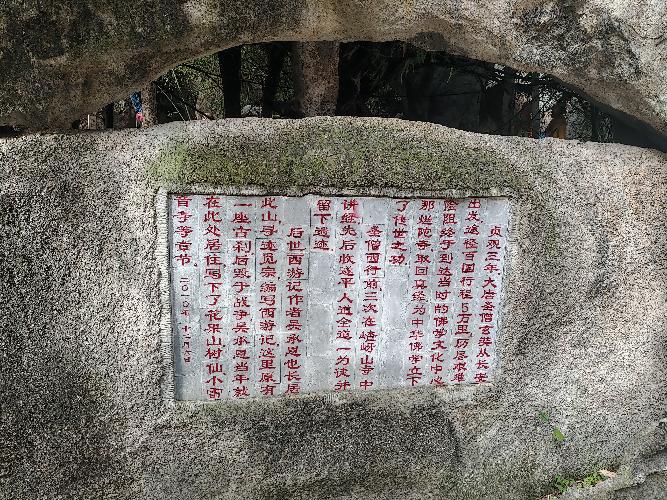 贞观三年大唐圣僧玄奘从长安
出发途径百国行程5万里历尽艰难
险阻终于到达当时的佛学文化中心
那烂陀寺取回真经为中华佛学立下
了传世之功
圣僧西行前三次在嵖岈山寺中
讲经先后收遂平人道全道一为徒并
留下遗迹
后世西游记作者吴承恩也长居
此山寻迹觅宗编写西游记这里原有
一座古刹后毁于战争吴承恩当年就
在此处居住写下了花果山树仙小雷
音寺等章节
二〇一〇年